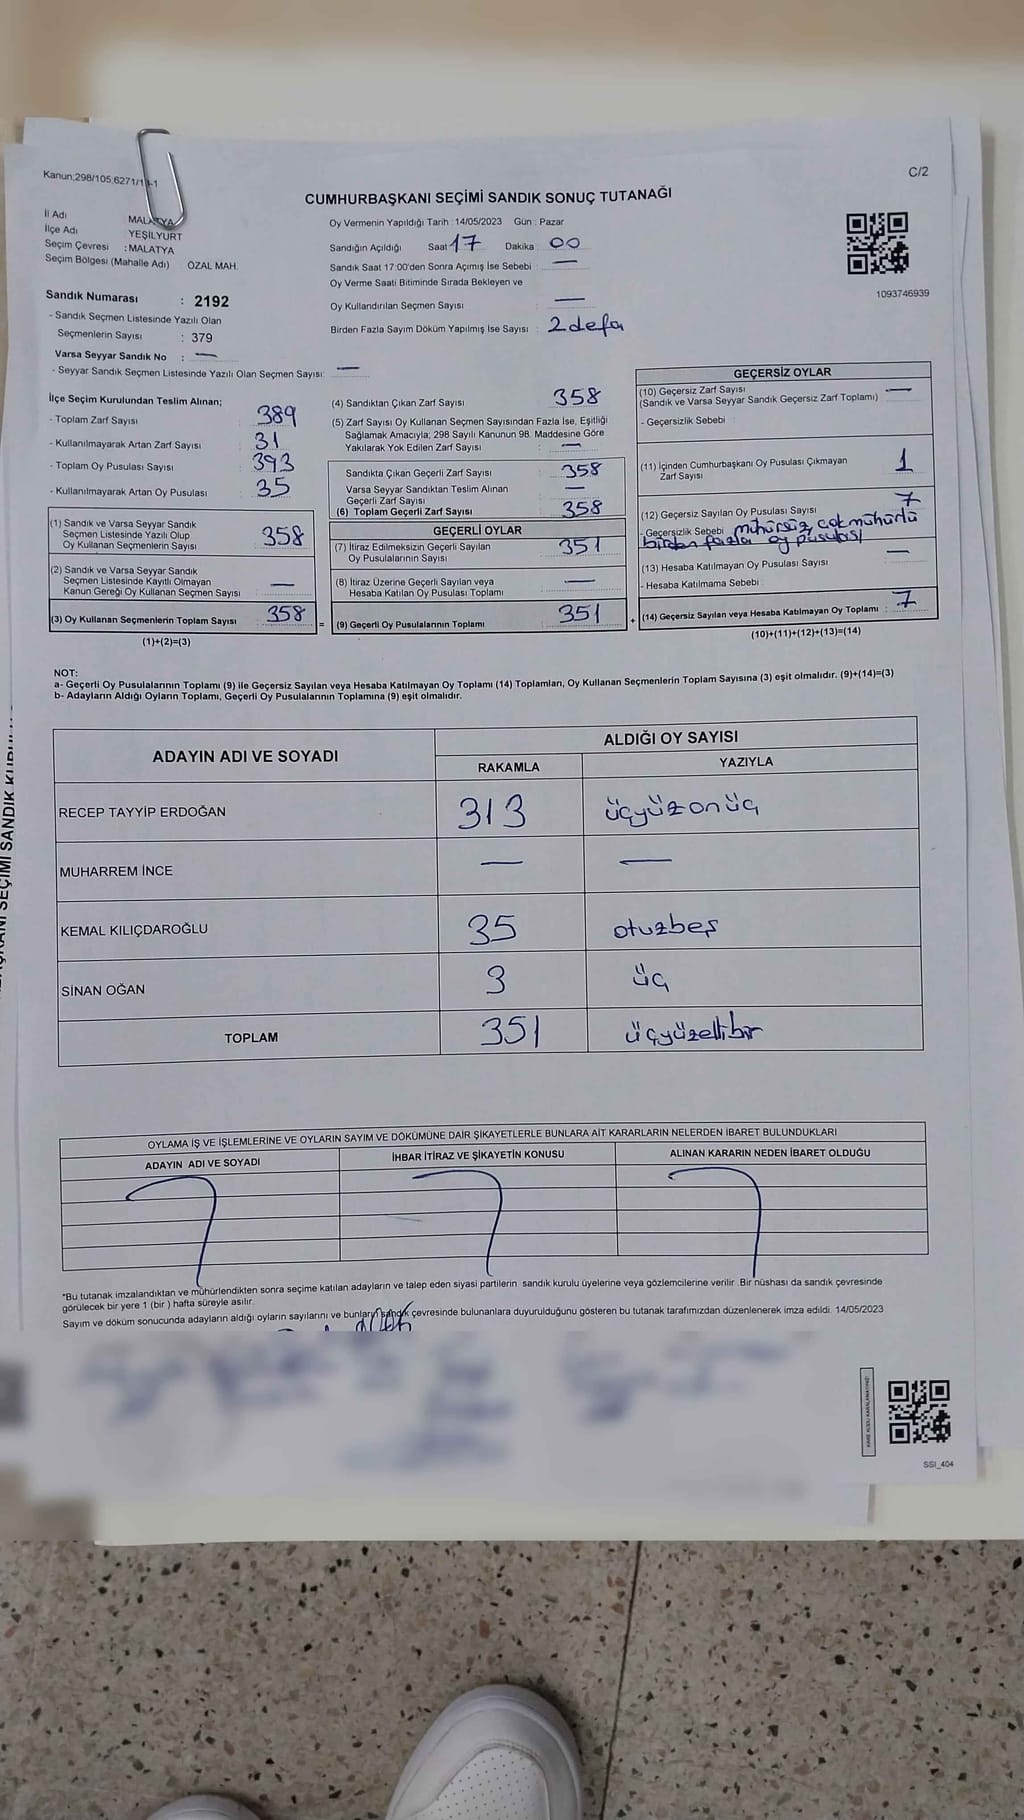 Kanun;298/105;6271/1
C/2
CUMHURBAŞKANI SEÇİMİ SANDIK SONUÇ TUTANAĞI
İl Adı MALATYA
İlçe Adı YEŞİLYURT
Seçim Çevresi : MALATYA
Seçim Bölgesi (Mahalle Adı) ÖZAL MAH.
Sandık Numarası : 2192
- Sandık Seçmen Listesinde Yazılı Olan
Seçmenlerin Sayısı : 379
Varsa Seyyar Sandık No : —
- Seyyar Sandık Seçmen Listesinde Yazılı Olan Seçmen Sayısı: —
Oy Vermenin Yapıldığı Tarih : 14/05/2023 Gün : Pazar
Sandığın Açıldığı Saat 17 Dakika 00
Sandık Saat 17:00'den Sonra Açımış İse Sebebi : —
Oy Verme Saati Bitiminde Sırada Bekleyen ve
Oy Kullandırılan Seçmen Sayısı : —
Birden Fazla Sayım Döküm Yapılmış İse Sayısı : 2 defa
1093746939
İlçe Seçim Kurulundan Teslim Alınan;
- Toplam Zarf Sayısı : 389
- Kullanılmayarak Artan Zarf Sayısı : 31
- Toplam Oy Pusulası Sayısı : 393
- Kullanılmayarak Artan Oy Pusulası : 35
(1) Sandık ve Varsa Seyyar Sandık
Seçmen Listesinde Yazılı Olup
Oy Kullanan Seçmenlerin Sayısı : 358
(2) Sandık ve Varsa Seyyar Sandık
Seçmen Listesinde Kayıtlı Olmayan
Kanun Gereği Oy Kullanan Seçmen Sayısı : —
(3) Oy Kullanan Seçmenlerin Toplam Sayısı : 358 =
(1)+(2)=(3)
(4) Sandıktan Çıkan Zarf Sayısı : 358
(5) Zarf Sayısı Oy Kullanan Seçmen Sayısından Fazla İse, Eşitliği
Sağlamak Amacıyla; 298 Sayılı Kanunun 98. Maddesine Göre
Yakılarak Yok Edilen Zarf Sayısı : —
Sandıkta Çıkan Geçerli Zarf Sayısı : 358
Varsa Seyyar Sandıktan Teslim Alınan
Geçerli Zarf Sayısı : —
(6) Toplam Geçerli Zarf Sayısı : 358
GEÇERLİ OYLAR
(7) İtiraz Edilmeksizin Geçerli Sayılan
Oy Pusulalarının Sayısı : 351
(8) İtiraz Üzerine Geçerli Sayılan veya
Hesaba Katılan Oy Pusulası Toplamı : —
(9) Geçerli Oy Pusulalarının Toplamı : 351 +
GEÇERSİZ OYLAR
(10) Geçersiz Zarf Sayısı : —
(Sandık ve Varsa Seyyar Sandık Geçersiz Zarf Toplamı)
- Geçersizlik Sebebi :
(11) İçinden Cumhurbaşkanı Oy Pusulası Çıkmayan
Zarf Sayısı : 1
(12) Geçersiz Sayılan Oy Pusulası Sayısı : 7
- Geçersizlik Sebebi : mühürsüz, çok mühürlü
birden fazla oy pusulası
(13) Hesaba Katılmayan Oy Pusulası Sayısı : —
- Hesaba Katılmama Sebebi :
(14) Geçersiz Sayılan veya Hesaba Katılmayan Oy Toplamı : 7
(10)+(11)+(12)+(13)=(14)
NOT:
a- Geçerli Oy Pusulalarının Toplamı (9) ile Geçersiz Sayılan veya Hesaba Katılmayan Oy Toplamı (14) Toplamları, Oy Kullanan Seçmenlerin Toplam Sayısına (3) eşit olmalıdır. (9)+(14)=(3)
b- Adayların Aldığı Oyların Toplamı, Geçerli Oy Pusulalarının Toplamına (9) eşit olmalıdır.
ADAYIN ADI VE SOYADI ALDIĞI OY SAYISI
RAKAMLA YAZIYLA
RECEP TAYYİP ERDOĞAN 313 üçyüzonüç
MUHARREM İNCE — —
KEMAL KILIÇDAROĞLU 35 otuzbeş
SİNAN OĞAN 3 üç
TOPLAM 351 üçyüzellibir
OYLAMA İŞ VE İŞLEMLERİNE VE OYLARIN SAYIM VE DÖKÜMÜNE DAİR ŞİKAYETLERLE BUNLARA AİT KARARLARIN NELERDEN İBARET BULUNDUKLARI
ADAYIN ADI VE SOYADI İHBAR İTİRAZ VE ŞİKAYETİN KONUSU ALINAN KARARIN NEDEN İBARET OLDUĞU
*Bu tutanak imzalandıktan ve mühürlendikten sonra seçime katılan adayların ve talep eden siyasi partilerin sandık kurulu üyelerine veya gözlemcilerine verilir. Bir nüshası da sandık çevresinde
görülecek bir yere 1 (bir ) hafta süreyle asılır.
Sayım ve döküm sonucunda adayların aldığı oyların sayılarını ve bunların sandık çevresinde bulunanlara duyurulduğunu gösteren bu tutanak tarafımızdan düzenlenerek imza edildi. 14/05/2023
SSI_404